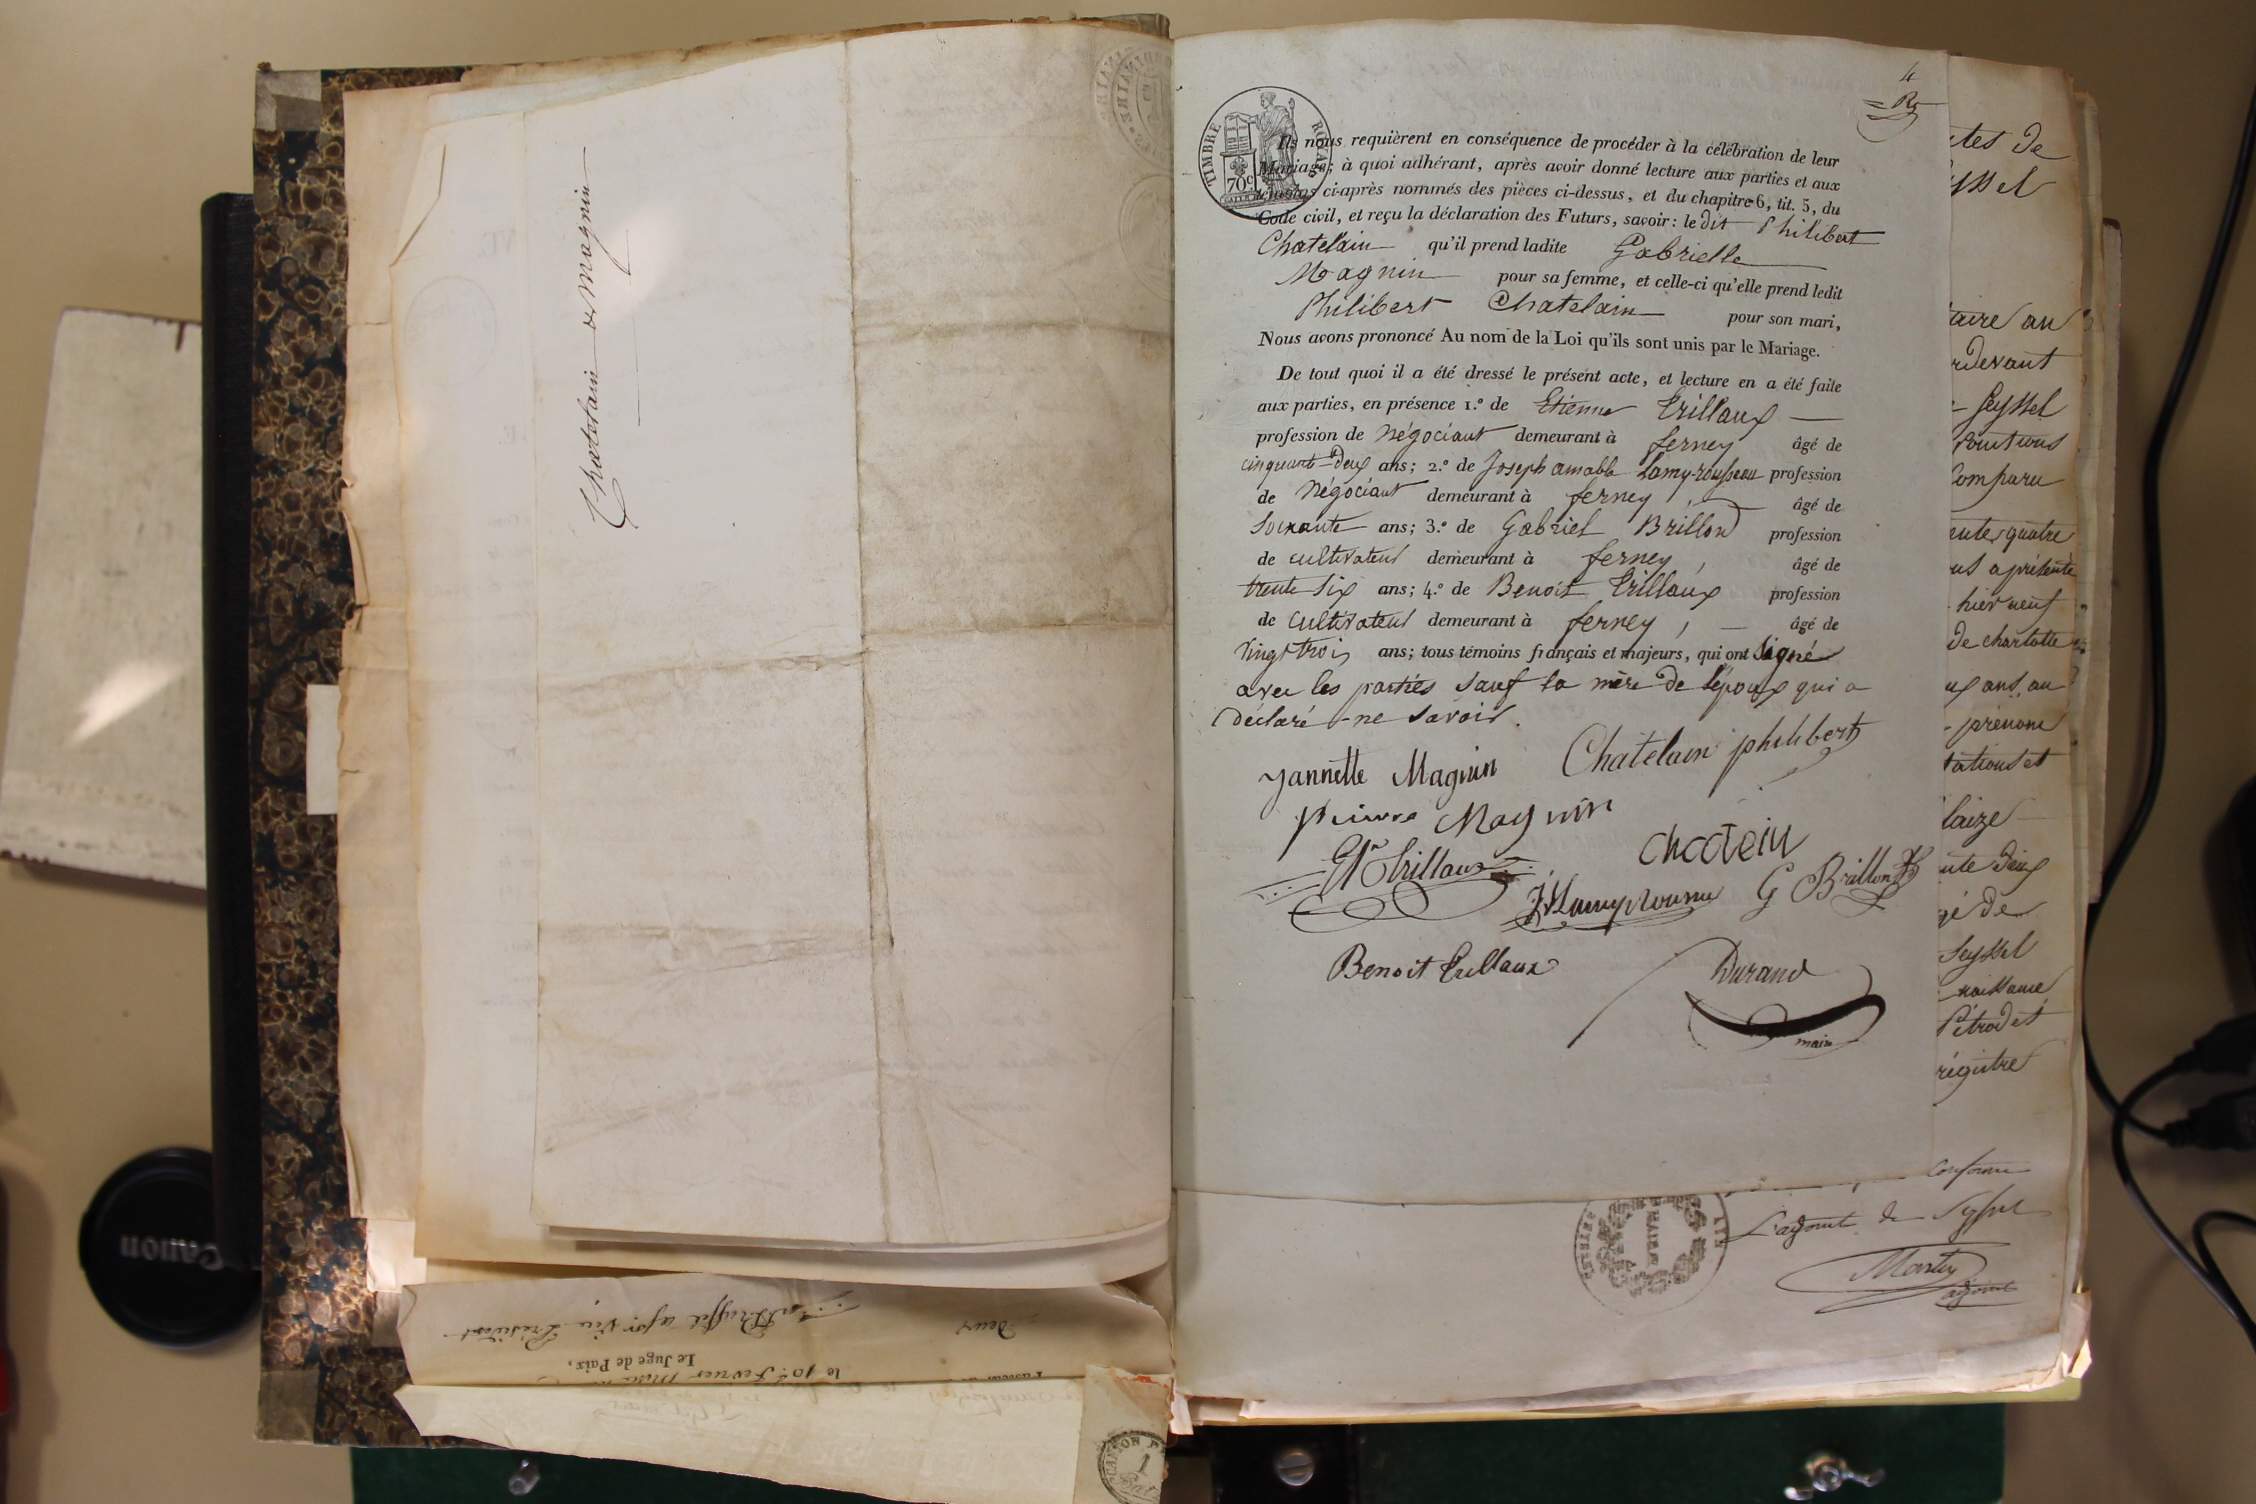 Chatelain & Magnin
4
TIMBRE ROYAL
70c
Ils nous requièrent en conséquence de procéder à la célébration de leur
Mariage; à quoi adhérant, après avoir donné lecture aux parties et aux
témoins ci-après nommés des pièces ci-dessus, et du chapitre 6, tit. 5, du
Code civil, et reçu la déclaration des Futurs, savoir: le dit Philibert
Chatelain qu'il prend ladite Gabrielle
Magnin pour sa femme, et celle-ci qu'elle prend ledit
Philibert Chatelain pour son mari,
Nous avons prononcé Au nom de la Loi qu'ils sont unis par le Mariage.
De tout quoi il a été dressé le présent acte, et lecture en a été faite
aux parties, en présence 1.º de Etienne Trillaux
profession de Négociant demeurant à ferney âgé de
cinquante-Deux ans; 2.º de Joseph amable Lamy-rousseau profession
de Négociant demeurant à ferney, âgé de
Soixante ans; 3.º de Gabriel Brillon profession
de cultivateur demeurant à ferney, âgé de
trente six ans; 4.º de Benoit Trillaux profession
de cultivateur demeurant à ferney, âgé de
vingt trois ans; tous témoins français et majeurs, qui ont Signé
avec les parties sauf la mère de l'époux qui a
déclaré ne savoir.
yannette Magnin Chatelain philibert
pierre Magnin
Et Trillaux
G Brillon
Benoit Trillaux
Durand
maire
rdevant
Seyssel
Comparu
hier neuf
de charlotte
ux ans, au
prénom
laize
Seyssel
Conforme
L'adjoint de Seyssel
MAIRIE
Le Juge de Paix,
Canon